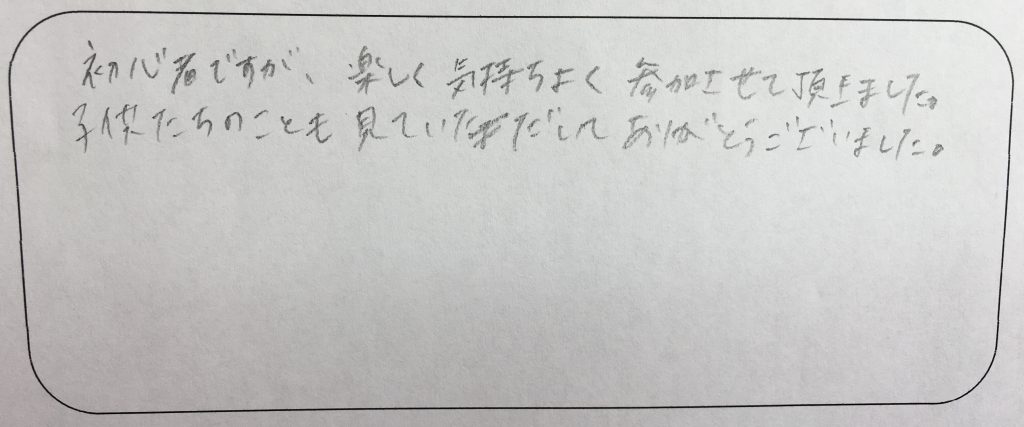 初心者ですが、楽しく気持ちよく参加させて頂きました。
子供たちのことも見ていただしてありがとうございました。